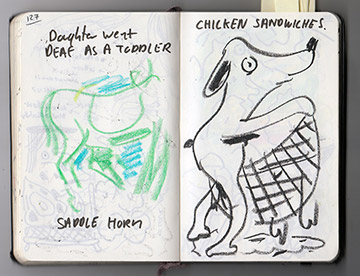 127
Daughter went
DEAF AS A TODDLER
SADDLE HORN
CHICKEN SANDWICHES.